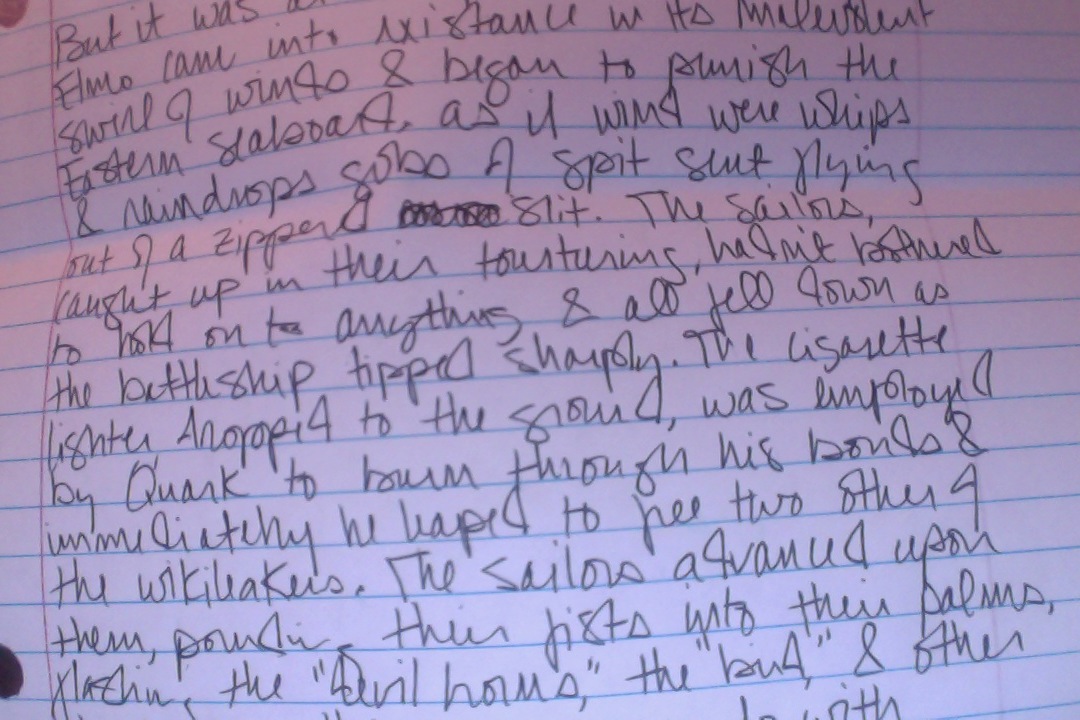 But it was
Elmo came into existence in its malevolent
swirl of winds & began to punish the
Eastern seaboard, as if wind were whips
& raindrops gobs of spit sent flying
out of a zippered slit. The sailors,
caught up in their tourturing, hadn't bothered
to hold on to anything & all fell down as
the battleship tipped sharply. The cigarette
lighter dropped to the ground, was employed
by Quark to burn through his bonds &
immediately he leaped to free two other of
the wikileakers. The sailors advanced upon
them, pounding their fists into their palms,
flashing the "devil horns," the "bird," & other
with